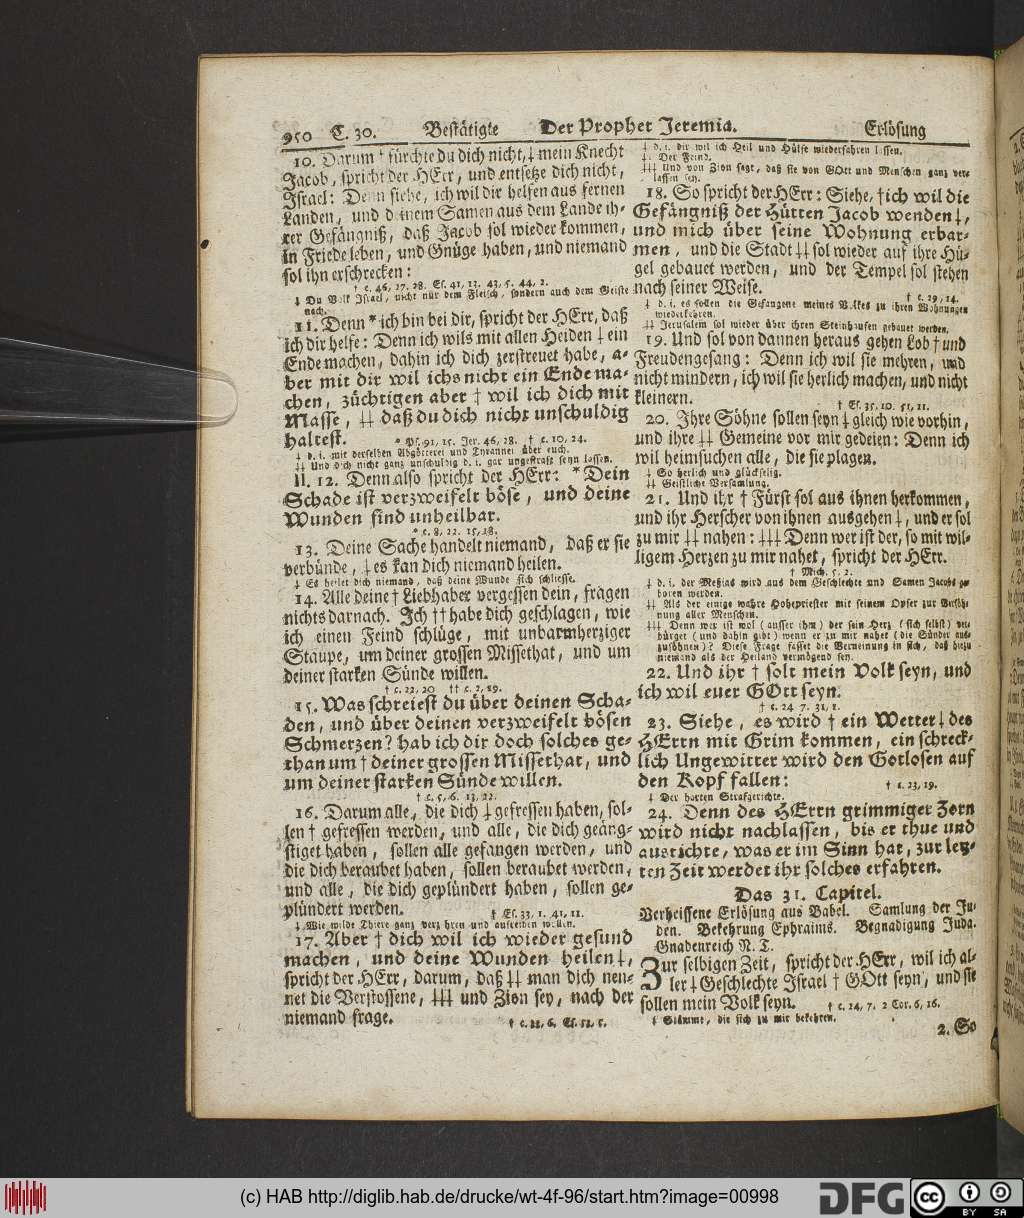 950 C. 30. Bestätigte Der Prophet Jeremia. Erlösung
10. Darum † fürchte du dich nicht, ‡ mein Knecht
Jacob, spricht der HErr, und entsetze dich nicht,
Israel: Denn siehe, ich wil dir helfen aus fernen
Landen, und deinem Samen aus dem Lande ih-
rer Gefängniß, daß Jacob sol wieder kommen,
in Friede leben, und Gnüge haben, und niemand
sol ihn erschrecken:
† c. 46, 27. 28. Es. 41, 13. 43, 5. 44, 2.
‡ Du Volk Israel, nicht nur dem Fleisch, sondern auch dem Geiste
nach.
11. Denn * ich bin bei dir, spricht der HErr, daß
ich dir helfe: Denn ich wils mit allen Heiden ‡ ein
Ende machen, dahin ich dich zerstreuet habe, a-
ber mit dir wil ichs nicht ein Ende ma-
chen, züchtigen aber † wil ich dich mit
Masse, ‡‡ daß du dich nicht unschuldig
haltest.
* Ps. 91, 15. Jer. 46, 28. † c. 10, 24.
‡ d. i. mit derselben Abgötterei und Tyrannei über euch.
‡‡ Und dich nicht ganz unschuldig d. i. gar ungestraft seyn lassen.
II. 12. Denn also spricht der HErr: * Dein
Schade ist verzweifelt böse, und deine
Wunden sind unheilbar.
* c. 8, 22. 15, 18.
13. Deine Sache handelt niemand, daß er sie
verbünde, ‡ es kan dich niemand heilen.
‡ Es heilet dich niemand, daß deine Wunde sich schliesse.
14. Alle deine † Liebhaber vergessen dein, fragen
nichts darnach. Ich †† habe dich geschlagen, wie
ich einen Feind schlüge, mit unbarmherziger
Staupe, um deiner grossen Missethat, und um
deiner starken Sünde willen.
† c. 22, 20 †† c. 2, 19.
15. Was schreiest du über deinen Scha-
den, und über deinen verzweifelt bösen
Schmerzen? hab ich dir doch solches ge-
than um † deiner grossen Missethat, und
um deiner starken Sünde willen.
† c. 5, 6. 13, 22.
16. Darum alle, die dich ‡ gefressen haben, sol-
len † gefressen werden, und alle, die dich geäng-
stiget haben, sollen alle gefangen werden, und
die dich beraubet haben, sollen beraubet werden,
und alle, die dich geplündert haben, sollen ge-
plündert werden.
† Es. 33, 1. 41, 11.
‡ Wie wilde Thiere ganz verzehren und aufreiben wollen.
17. Aber † dich wil ich wieder gesund
machen, und deine Wunden heilen ‡,
spricht der HErr, darum, daß ‡‡ man dich nen-
net die Verstossene, ‡‡‡ und Zion sey, nach der
niemand frage.
† c. 33, 6. Es. 53, 5.
‡ d. i. dir wil ich Heil und Hülfe wiederfahren lassen.
‡‡ Der Feind.
‡‡‡ Und von Zion sagt, daß sie von GOtt und Menschen ganz ver-
lassen sey.
18. So spricht der HErr: Siehe, † ich wil die
Gefängniß der Hütten Jacob wenden ‡,
und mich über seine Wohnung erbar-
men, und die Stadt ‡‡ sol wieder auf ihre Hü-
gel gebauet werden, und der Tempel sol stehen
nach seiner Weise.
† c. 29, 14.
‡ d. i. es sollen die Gefangene meines Volkes zu ihren Wohnungen
wiederkehren.
‡‡ Jerusalem sol wieder über ihren Steinhaufen gebauet werden.
19. Und sol von dannen heraus gehen Lob † und
Freudengesang: Denn ich wil sie mehren, und
nicht mindern, ich wil sie herlich machen, und nicht
kleinern.
† Es. 35, 10. 51, 11.
20. Ihre Söhne sollen seyn ‡ gleich wie vorhin,
und ihre ‡‡ Gemeine vor mir gedeien: Denn ich
wil heimsuchen alle, die sie plagen.
‡ So herlich und glückselig.
‡‡ Geistliche Versamlung.
21. Und ihr † Fürst sol aus ihnen herkommen,
und ihr Herscher von ihnen ausgehen ‡, und er sol
zu mir ‡‡ nahen: ‡‡‡ Denn wer ist der, so mit wil-
ligem Herzen zu mir nahet, spricht der HErr.
† Mich. 5, 2.
‡ d. i. der Meßias wird aus dem Geschlechte und Samen Jacobs ge-
boren werden.
‡‡ Als der einige wahre Hohepriester mit seinem Opfer zur Versöh-
nung aller Menschen.
‡‡‡ Denn wer ist wol (ausser ihm) der sein Herz (sich selbst) ver-
bürget (und dahin gibt) wenn er zu mir nahet (die Sünder aus-
zusöhnen)? Diese Frage fasset die Verneinung in sich, daß hiezu
niemand als der Heiland vermögend sey.
22. Und ihr † solt mein Volk seyn, und
ich wil euer GOtt seyn.
† c. 24 7. 31, 1.
23. Siehe, es wird † ein Wetter ‡ des
HErrn mit Grim kommen, ein schreck-
lich Ungewitter wird den Gotlosen auf
den Kopf fallen:
† c. 23, 19.
‡ Der harten Strafgerichte.
24. Denn des HErrn grimmiger Zorn
wird nicht nachlassen, bis er thue und
ausrichte, was er im Sinn hat, zur lez-
ten Zeit werdet ihr solches erfahren.
Das 31. Capitel.
Verheissene Erlösung aus Babel. Samlung der Ju-
den. Bekehrung Ephraims. Begnadigung Juda.
Gnadenreich N. T.
Zur selbigen Zeit, spricht der HErr, wil ich al-
ler ‡ Geschlechte Israel † GOtt seyn, und sie
sollen mein Volk seyn.
† c. 24, 7. 2 Cor. 6, 16.
‡ Stämme, die sich zu mir bekehren.
2. So
(c) HAB http://diglib.hab.de/drucke/wt-4f-96/start.htm?image=00998
DFG
cc BY SA